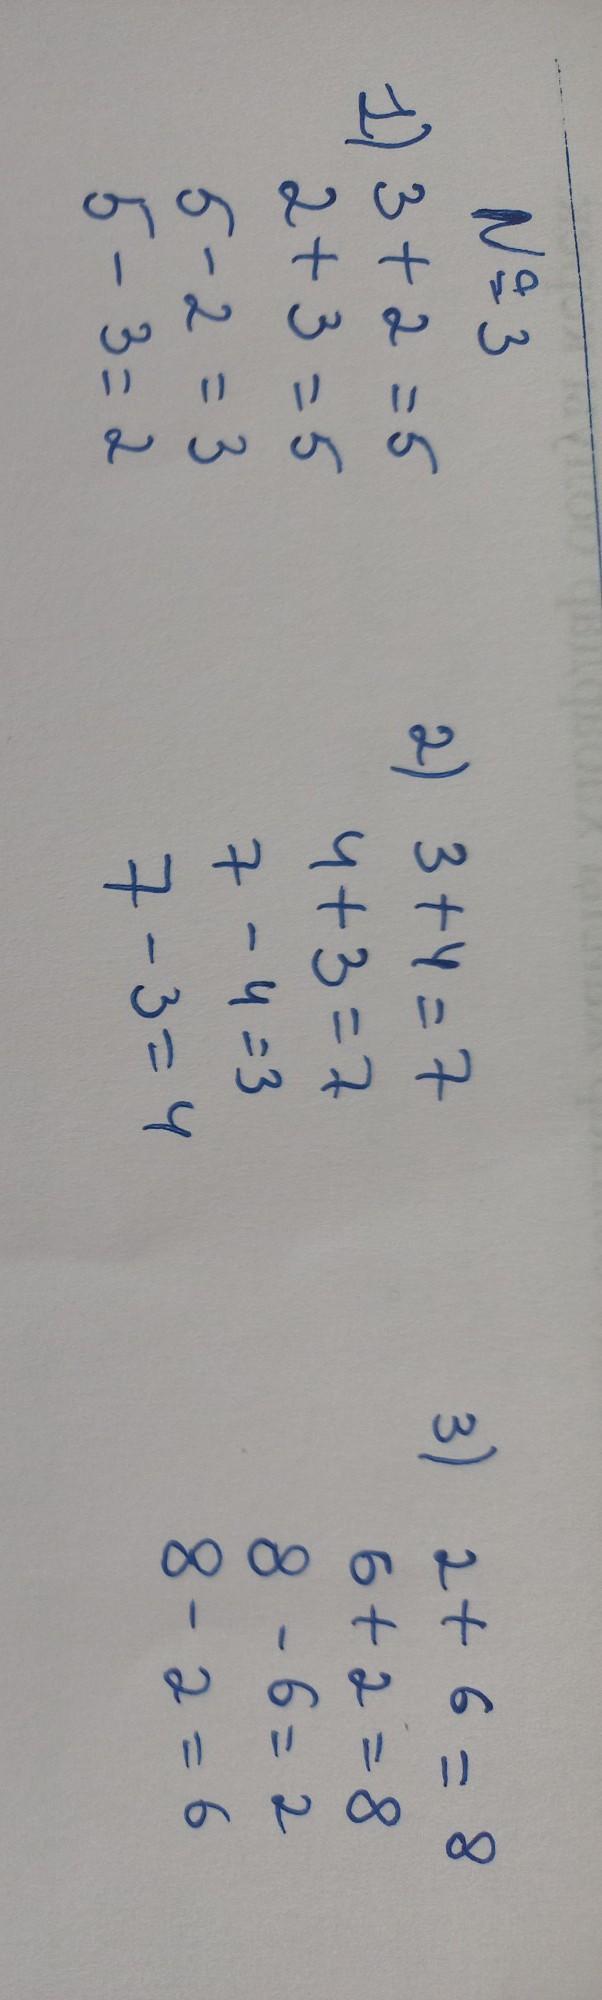 №3
1) 3 + 2 = 5
2 + 3 = 5
5 - 2 = 3
5 - 3 = 2
2) 3 + 4 = 7
4 + 3 = 7
7 - 4 = 3
7 - 3 = 4
3) 2 + 6 = 8
6 + 2 = 8
8 - 6 = 2
8 - 2 = 6